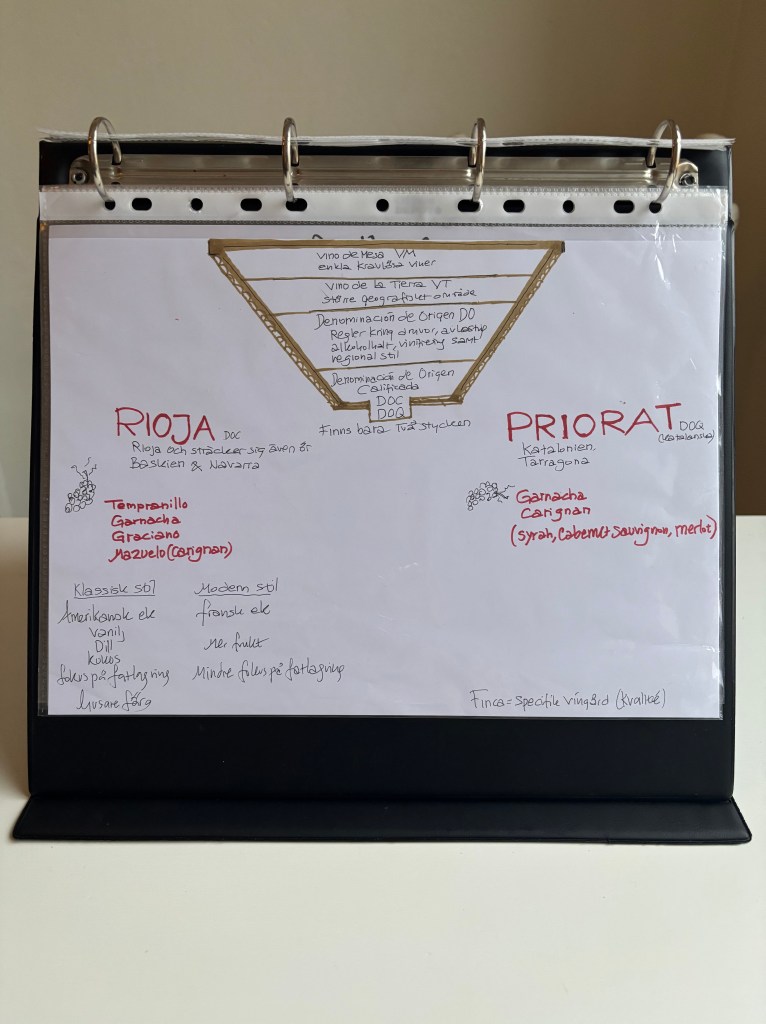 Vino de Mesa VM
enkla kravlösa viner
Vino de la Tierra VT
större geografiskt område
Denominación de Origen DO
Regler kring druvor, avkastning
alkoholhalt, vinifiering samt
regional stil
Denominación de Origen
Calificada
DOC
DOQ
Finns bara två stycken
RIOJA DOC
Rioja och sträcker sig även
Baskien & Navarra
Tempranillo
Garnacha
Graciano
Mazuelo (Carignan)
Klassisk stil
Amerikansk ek
Vanilj
Dill
Kokos
fokus på fatlagring
ljusare färg
Modern stil
fransk ek
Mer frukt
Mindre fokus på fatlagring
PRIORAT DOQ
(Katalanska)
Katalonien,
Tarragona
Garnacha
Carignan
(Syrah, Cabernet Sauvignon, merlot)
Finca = Specifik vingård (Kvalité)